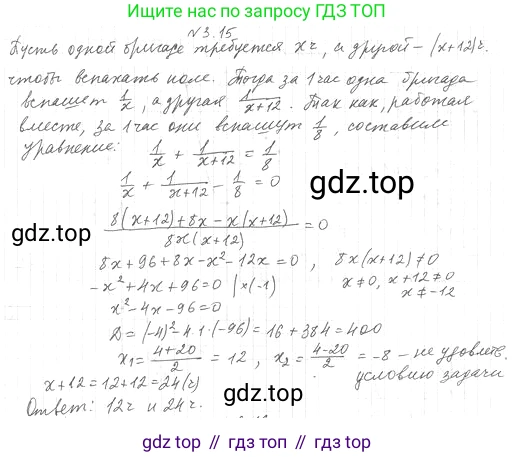 Ищите нас по запросу ГДЗ ТОП
N3.15
Пусть одной бригаде требуется x ч, а другой – (x+12) ч.
чтобы вспахать поле. Тогда за 1 час одна бригада
вспашет 1/x, а другая 1/(x+12). Так как, работая
вместе, за 1 час они вспашут 1/8, составим
уравнение: 1/x + 1/(x+12) = 1/8
1/x + 1/(x+12) - 1/8 = 0
gdz.top
(8(x+12)+8x-x(x+12))/(8x(x+12)) = 0
gdz.top
8x+96+8x-x²-12x=0, 8x(x+12)≠0
-x²+4x+96=0 |×(-1) x≠0, x+12≠0
x≠-12
x²-4x-96=0
D=(-4)²-4·1·(-96)=16+384=400
x₁=(4+20)/2=12, x₂=(4-20)/2=-8 – не удовлетв.
условию задачи
x+12=12+12=24(ч)
gdz.top
Ответ: 12ч и 24ч.
gdz.top // гдз.топ // гдз топ